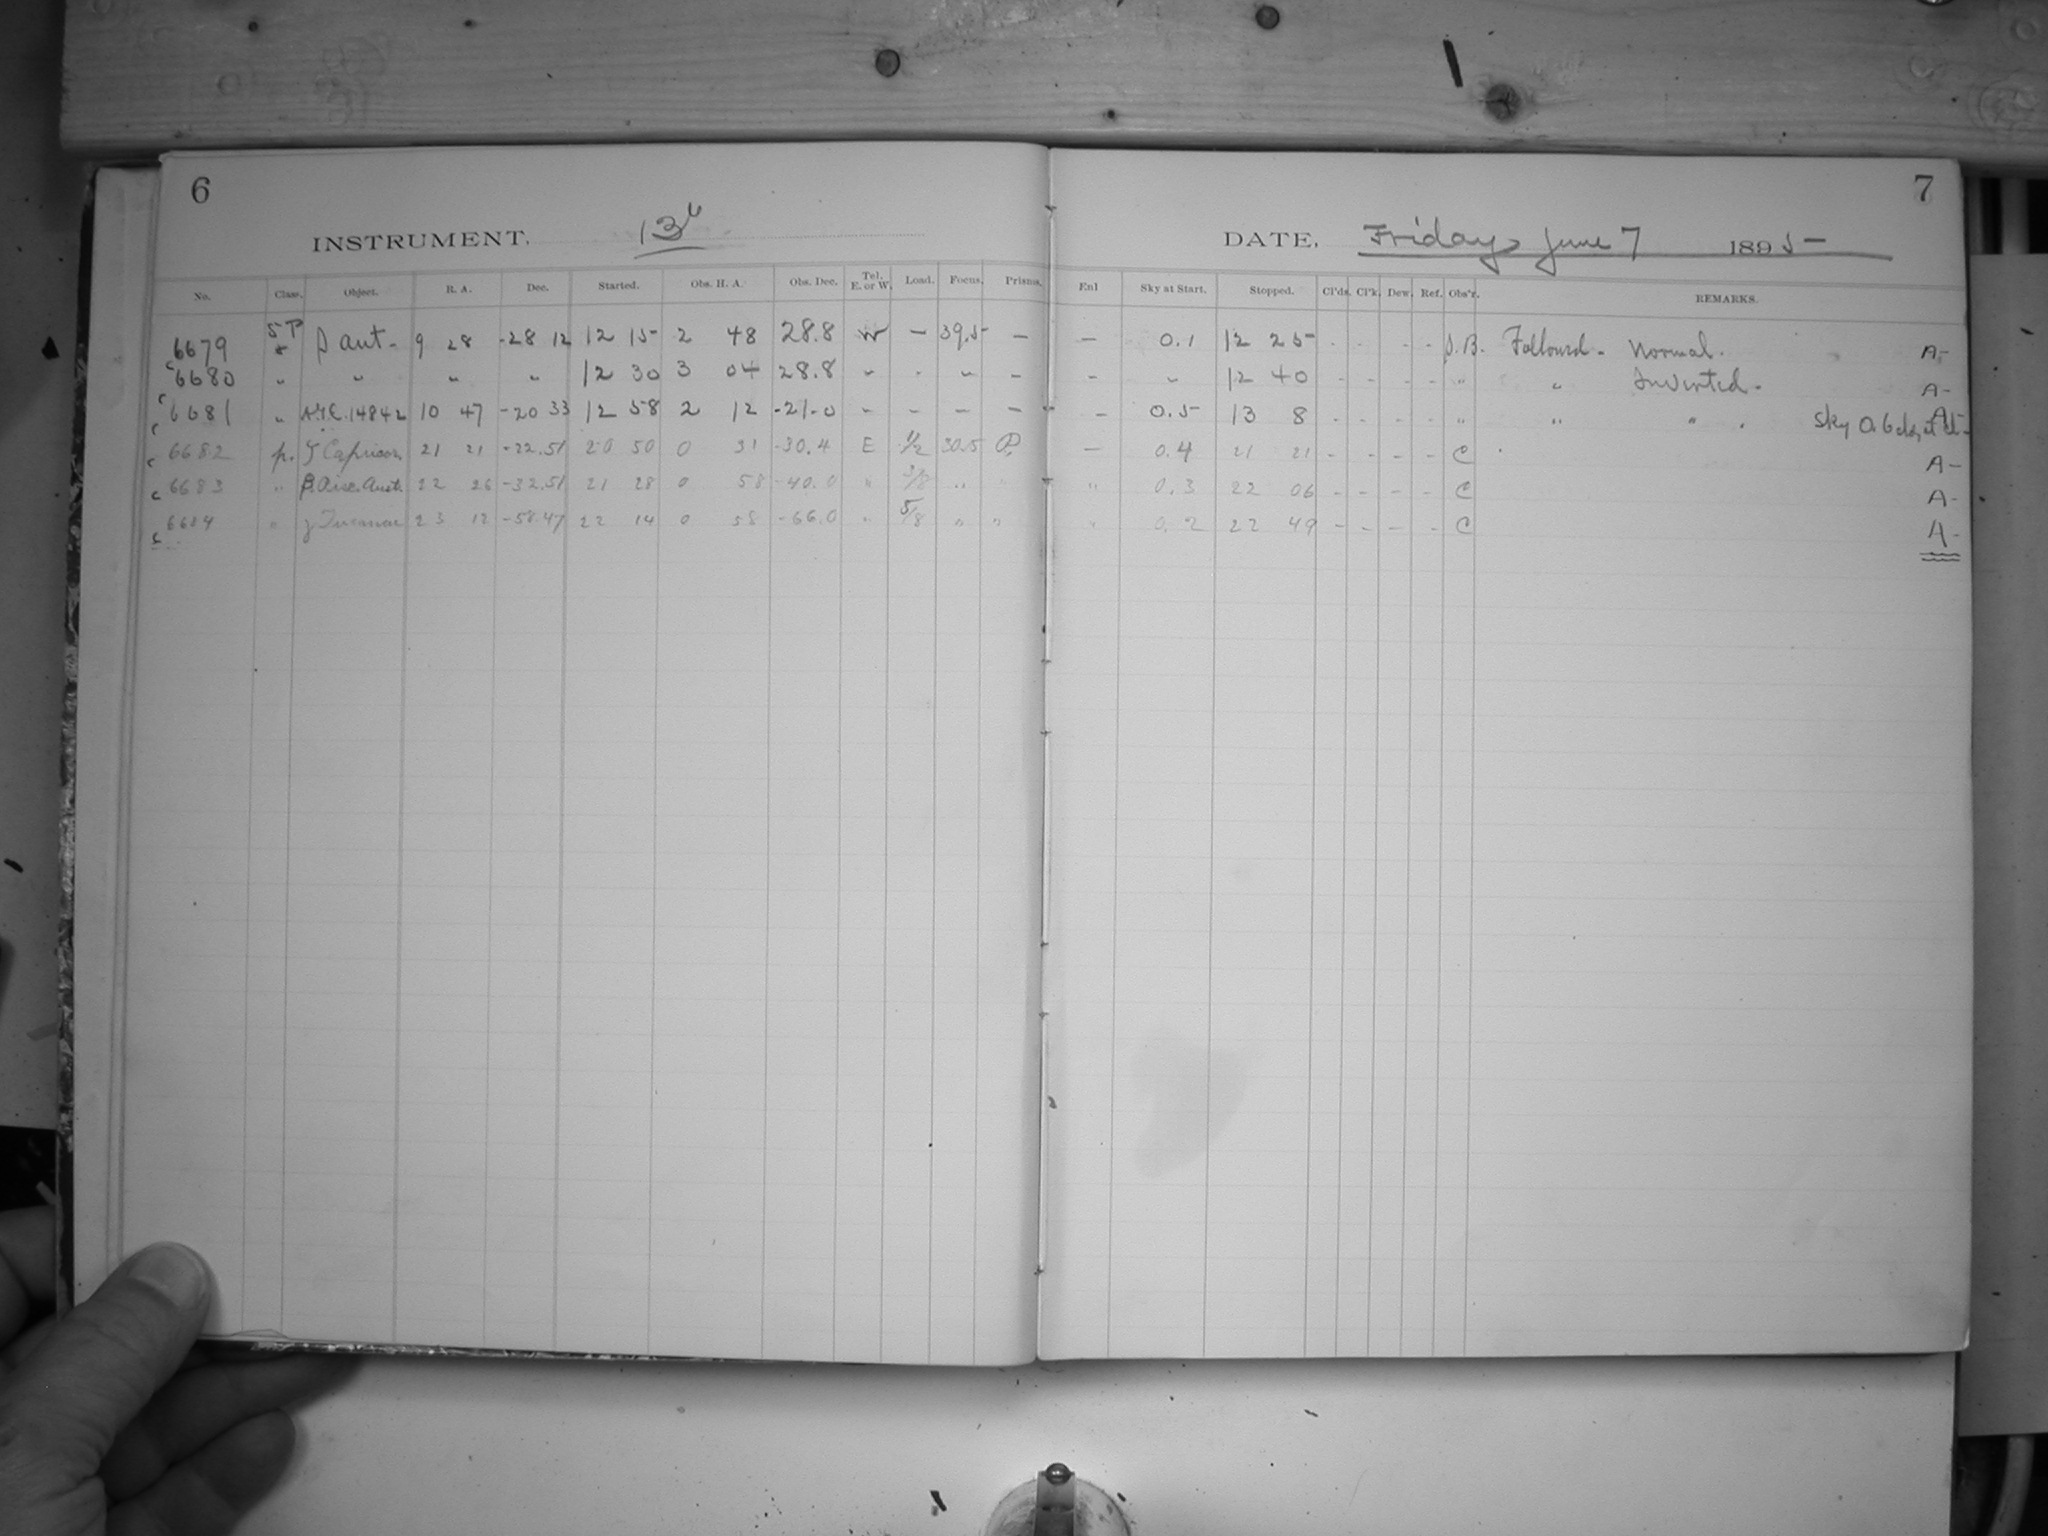 6 7
INSTRUMENT. 13" DATE, Friday June 7 1895
No. Class. Object. R. A. Dec. Started. Obs. H. A. Obs. Dec. Tel. E. or W. Load. Focus. Prisms. Enl Sky at Start. Stopped. Cl'ds. Cl'k. Dew. Ref. Obs'r. REMARKS.
6679 5P 8 β ant- 9 28 -28 12 12 15 2 48 28.8 W — 39.5 — — 0.1 12 25 - - - - S.B. Followed - Normal. A-
c 6680 " " " " 12 30 3 04 28.8 " - " — — " 12 40 - - - - " " Inverted - A-
c 6681 " 14842 10 47 -20 33 12 58 2 12 -21.0 - - - — — 0.5 13 8 - - - - " " " . Sky 0.6 A-
c 6682 p. ζ Capricorn 21 21 -22.51 20 50 0 31 -30.4 E 1/2 30.5 P. — 0.4 21 21 - - - - C A-
c 6683 " β. Pisc. Aust. 22 26 -32.51 21 28 0 58 -40.0 " 3/8 " " " 0.3 22 06 - - - - C A-
c 6684 " γ Tucanae 23 12 -58.47 22 14 0 58 -66.0 " 5/8 " " " 0.2 22 49 - - - - C A-